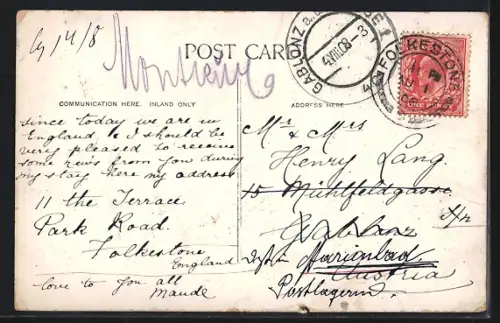 POST CARD
COMMUNICATION HERE. INLAND ONLY
ADDRESS HERE.
GABLONZ a.d.
FOLKESTONE
ONE PENNY
since today we are in
England & I should be
very pleased to receive
some news from you during
my stay here my address
11 the Terrace
Park Road.
Folkestone
England
love to you all
Maude
Mr & Mrs
Henry Lang.
15 Mühlfeldgasse
Gablonz
Marienbad
Austria
Postlagernd.